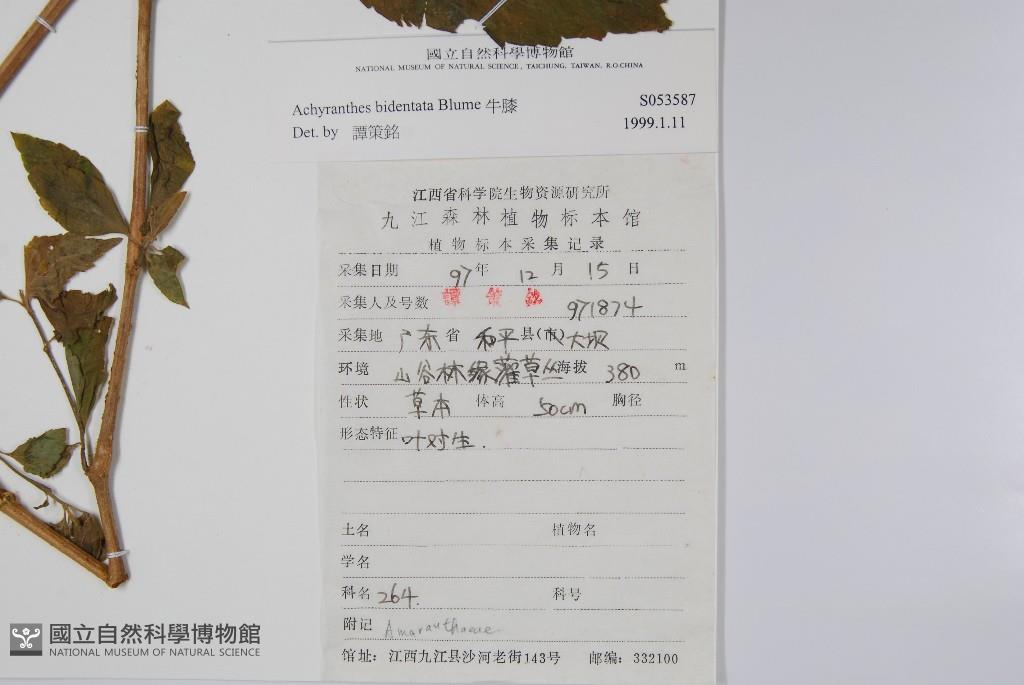 國立自然科學博物館
NATIONAL MUSEUM OF NATURAL SCIENCE, TAICHUNG, TAIWAN, R.O.CHINA
Achyranthes bidentata Blume 牛膝 S053587
Det. by 譚策銘 1999.1.11
江西省科学院生物资源研究所
九江森林植物标本馆
植物标本采集记录
采集日期 97年 12月 15日
采集人及号数 譚策銘 971874
采集地 广东省 和平县(市)大坝
环境 山谷林缘灌草丛 海拔 380 m
性状 草本 体高 50cm 胸径
形态特征 叶对生.
土名 植物名
学名
科名 264. 科号
附记 Amaranthaceae
馆址: 江西九江县沙河老街143号 邮编: 332100
國立自然科學博物館
NATIONAL MUSEUM OF NATURAL SCIENCE